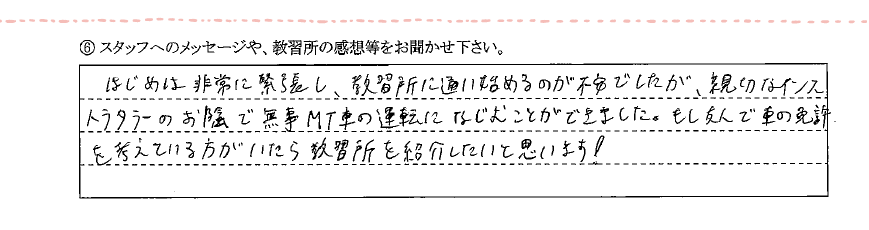 ⑥ スタッフへのメッセージや、教習所の感想等をお聞かせ下さい。
はじめは非常に緊張し、教習所に通い始めるのが不安でしたが、親切なインス
トラクターのお陰で無事MT車の運転になじむことができました。もし友人で車の免許
を考えている方がいたら教習所を紹介したいと思います!